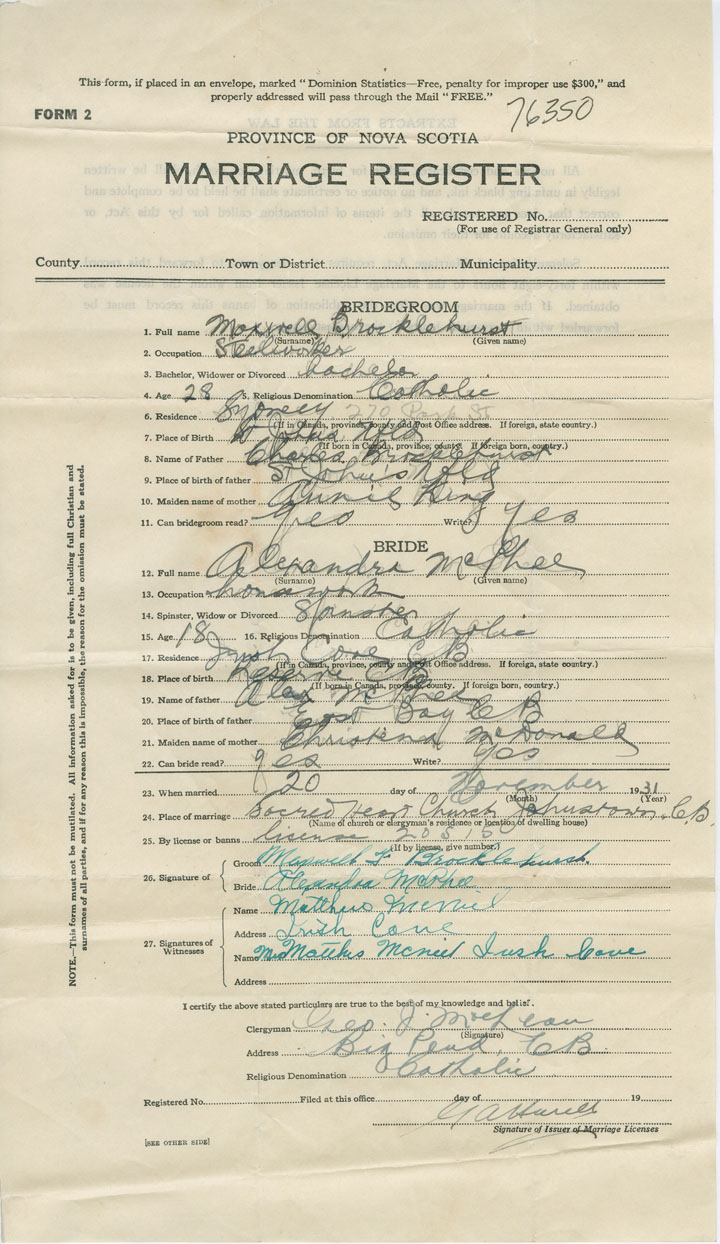 This form, if placed in an envelope, marked "Dominion Statistics—Free, penalty for improper use $300," and
properly addressed will pass through the Mail "FREE."
76350
FORM 2
PROVINCE OF NOVA SCOTIA
MARRIAGE REGISTER
REGISTERED No.
(For use of Registrar General only)
County Town or District Municipality
BRIDEGROOM
1. Full name Maxwell Brocklehurst
(Surname) (Given name)
2. Occupation Steelworker
3. Bachelor, Widower or Divorced bachelor
4. Age 28 5. Religious Denomination Catholic
6. Residence Sydney 270 Park St
(If in Canada, province, county and Post Office address. If foreign, state country.)
7. Place of Birth St Johns Nfld
(If born in Canada, province, county. If foreign born, country.)
8. Name of Father Charles Brocklehurst
9. Place of birth of father St John's Nfld
10. Maiden name of mother Annie King
11. Can bridegroom read? yes Write? yes
BRIDE
12. Full name Alexandra McPhee
(Surname) (Given name)
13. Occupation
14. Spinster, Widow or Divorced Spinster
15. Age 18 16. Religious Denomination Catholic
17. Residence Irish Cove CB
(If in Canada, province, county and Post Office address. If foreign, state country.)
18. Place of birth Reserve CB
(If born in Canada, province, county. If foreign born, country.)
19. Name of father Alex McPhee
20. Place of birth of father East Bay CB
21. Maiden name of mother Christena McDonald
22. Can bride read? yes Write? yes
23. When married 20 day of November 1931
(Month) (Year)
24. Place of marriage Sacred Heart Church Johnstown, C.B.
(Name of church or clergyman's residence or location of dwelling house)
25. By license or banns license
(If by license, give number.)
26. Signature of
Groom Maxwell F Brocklehurst
Bride Alexandra McPhee
27. Signatures of Witnesses
Name Matthew McNeil
Address Irish Cove
Name Mrs Matthew McNeil Irish Cove
Address
I certify the above stated particulars are true to the best of my knowledge and belief.
Clergyman Geo. J.
(Signature)
Address Big Pond, CB
Religious Denomination Catholic
Registered No. Filed at this office day of 19
Signature of Issuer of Marriage Licenses
[SEE OTHER SIDE]
NOTE.—This form must not be mutilated. All information asked for is to be given, including full Christian and
surnames of all parties, and if for any reason this is impossible, the reason for the omission must be stated.